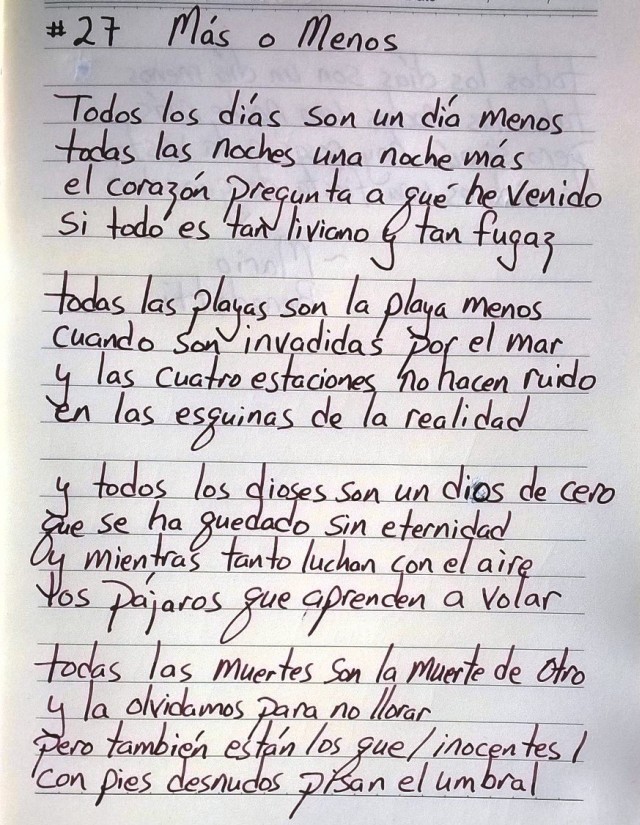 #27 Más o Menos
Todos los días son un día menos
todas las noches una noche más
el corazón pregunta a qué he venido
si todo es tan liviano y tan fugaz
todas las playas son la playa menos
cuando son invadidas por el mar
y las cuatro estaciones no hacen ruido
en las esquinas de la realidad
y todos los dioses son un dios de cero
que se ha quedado sin eternidad
y mientras tanto luchan con el aire
los pájaros que aprenden a volar
todas las muertes son la muerte de otro
y la olvidamos para no llorar
pero también están los que/inocentes/
con pies desnudos pisan el umbral